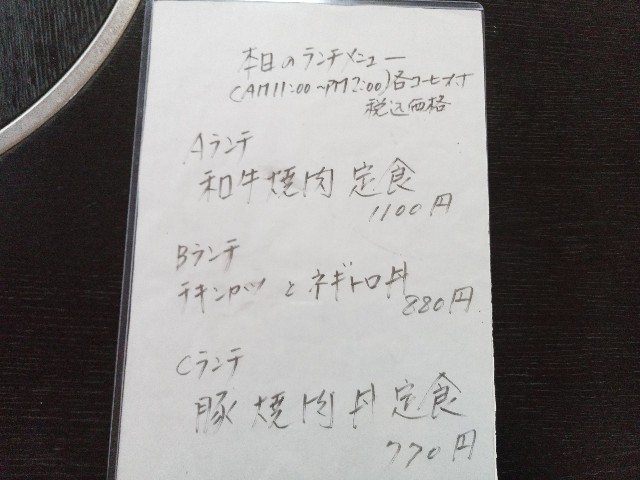 本日のランチメニュー
(AM11:00~PM2:00)各コーヒー付
税込価格
Aランチ
和牛焼肉定食
1100円
Bランチ
チキンカツとネギトロ丼
880円
Cランチ
豚焼肉丼定食
770円